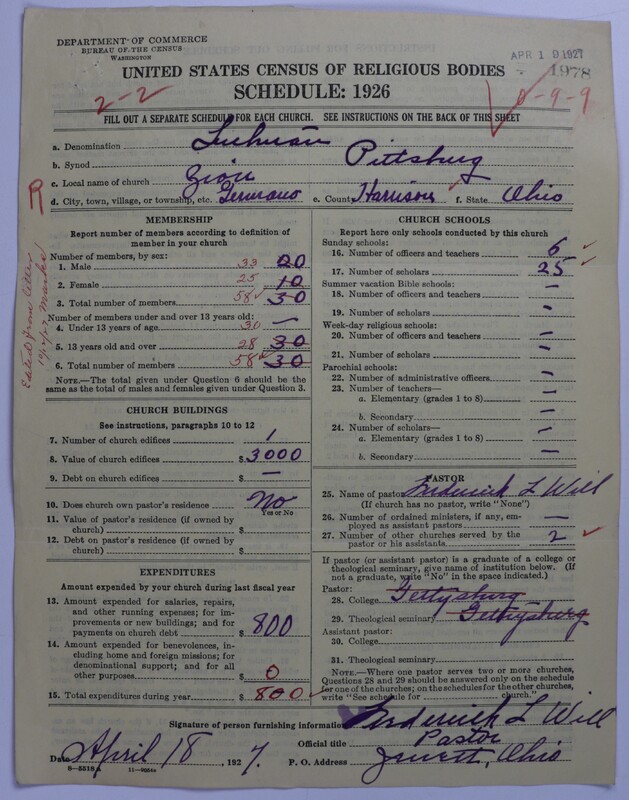 DEPARTMENT OF COMMERCE
BUREAU OF THE CENSUS
WASHINGTON
APR 19 1927
1978
UNITED STATES CENSUS OF RELIGIOUS BODIES
SCHEDULE: 1926
2-2
8-9-9
FILL OUT A SEPARATE SCHEDULE FOR EACH CHURCH. SEE INSTRUCTIONS ON THE BACK OF THIS SHEET
a. Denomination Luthuran
b. Synod Pittsburg
c. Local name of church Zion
d. City, town, village, or township, etc. Germano e. County Harrison f. State Ohio
R
Edited from letter
MEMBERSHIP
Report number of members according to definition of member in your church
Number of members, by sex:
1. Male 33 20
2. Female 25 10
3. Total number of members 58 30
Number of members under and over 13 years old:
4. Under 13 years of age 30 —
5. 13 years old and over 28 30
6. Total number of members 58 30
NOTE.—The total given under Question 6 should be the same as the total of males and females given under Question 3.
CHURCH BUILDINGS
See instructions, paragraphs 10 to 12
7. Number of church edifices 1
8. Value of church edifices $ 3000
9. Debt on church edifices $ —
10. Does church own pastor's residence No
Yes or No
11. Value of pastor's residence (if owned by church) $
12. Debt on pastor's residence (if owned by church) $
EXPENDITURES
Amount expended by your church during last fiscal year
13. Amount expended for salaries, repairs, and other running expenses; for improvements or new buildings; and for payments on church debt $ 800
14. Amount expended for benevolences, including home and foreign missions; for denominational support; and for all other purposes $ 0
15. Total expenditures during year $ 800
CHURCH SCHOOLS
Report here only schools conducted by this church
Sunday schools:
16. Number of officers and teachers 6
17. Number of scholars 25
Summer vacation Bible schools:
18. Number of officers and teachers —
19. Number of scholars —
Week-day religious schools:
20. Number of officers and teachers —
21. Number of scholars —
Parochial schools:
22. Number of administrative officers —
23. Number of teachers—
a. Elementary (grades 1 to 8) —
b. Secondary —
24. Number of scholars—
a. Elementary (grades 1 to 8) —
b. Secondary —
PASTOR
25. Name of pastor Frederick L Will
(If church has no pastor, write "None")
26. Number of ordained ministers, if any, employed as assistant pastors —
27. Number of other churches served by the pastor or his assistants 2
If pastor (or assistant pastor) is a graduate of a college or theological seminary, give name of institution below. (If not a graduate, write "No" in the space indicated.)
Pastor:
28. College Gettysburg
29. Theological seminary Gettysburg
Assistant pastor:
30. College
31. Theological seminary
NOTE.—Where one pastor serves two or more churches, Questions 28 and 29 should be answered only on the schedule for one of the churches; on the schedules for the other churches, write "See schedule for church."
Signature of person furnishing information Frederick L Will
Official title Pastor
Date April 18, 1927. P. O. Address Jewett, Ohio
8-5518a